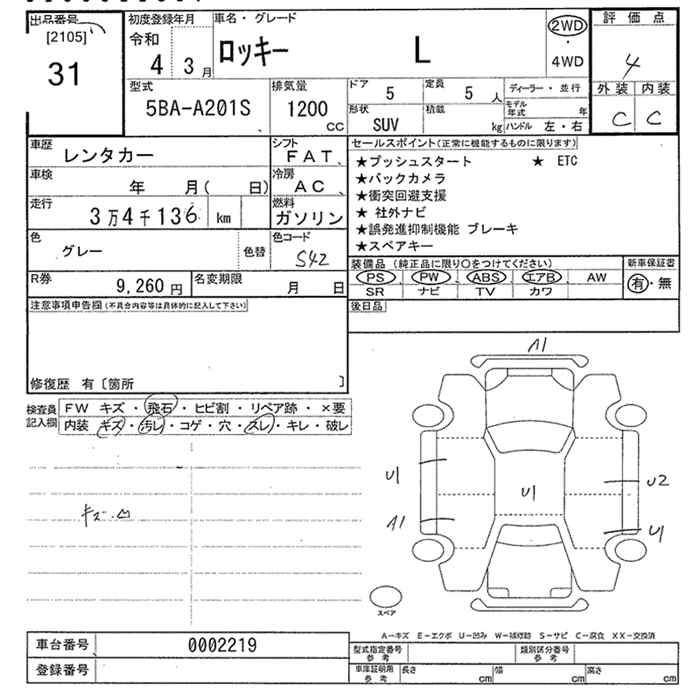 出品番号 [2105] 31
初度登録年月 令和 4 3月
車名・グレード ロッキー L
2WD・4WD
評価点 4
外装 内装
C C
型式 5BA-A201S
排気量 1200 CC
ドア 5 定員 5 人
形状 SUV 積載 kg
ディーラー・並行
モデル年式 年
ハンドル 左・右
車歴 レンタカー
シフト FAT
車検 年 月( 日)
冷房 AC
走行 3万4千136 km
燃料 ガソリン
色 グレー 色替
色コード S42
R券 9,260円
名変期限 月 日
セールスポイント(正常に機能するものに限ります)
★プッシュスタート ★ ETC
★バックカメラ
★衝突回避支援
★ 社外ナビ
★誤発進抑制機能 ブレーキ
★スペアキー
装備品 (純正品に限り○をつけてください)
新車保証書
PS PW ABS エアB AW
有・無
SR ナビ TV カワ
後日品
注意事項申告欄(不具合内容等は具体的に記入して下さい)
修復歴 有〔箇所 〕
検査員記入欄
FW キズ・飛石・ヒビ割・リペア跡・×要
内装 キズ・汚レ・コゲ・穴・スレ・キレ・破レ
A1
U1
U1
U2
A1
U1
キズ・凹
スペア
A-キズ E-エクボ U-凹み W-補修跡 S-サビ C-腐食 XX-交換済
車台番号 0002219
登録番号
型式指定番号 参考
類別区分番号 参考
車庫証明用 参考
長さ cm 幅 cm 高さ cm